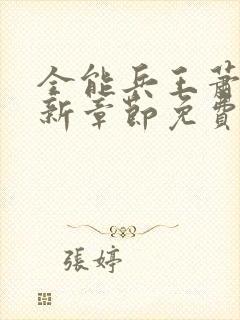 全能兵王蕭
新章節免費
張婷